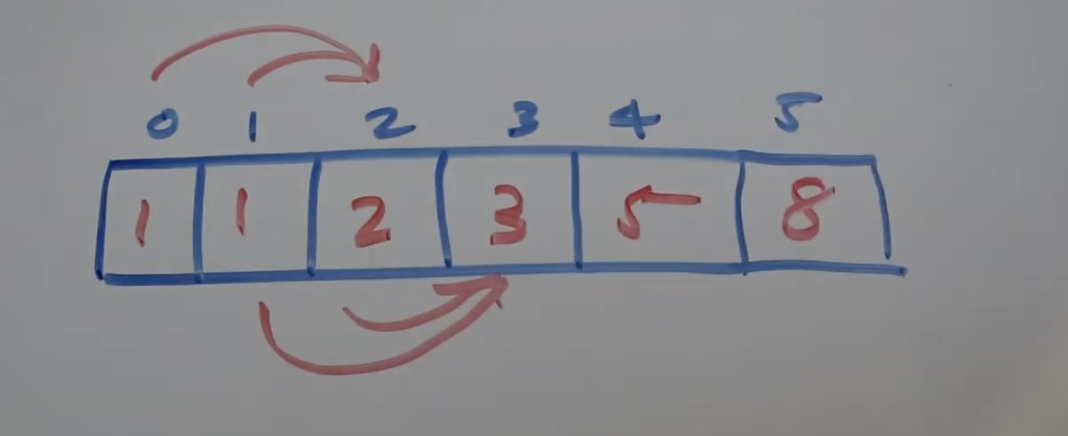 0 1 2 3 4 5
1 1 2 3 5 8